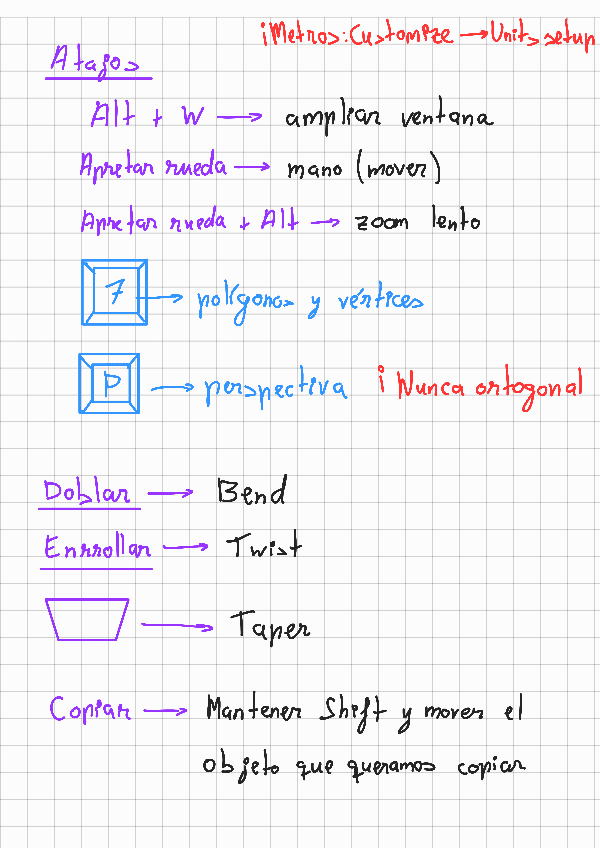 ¡Metros: Customize → Units setup
Atajos
Alt + W → ampliar ventana
Apretar rueda → mano (mover)
Apretar rueda + Alt → zoom lento
7 → polígonos y vértices
P → perspectiva ¡Nunca ortogonal
Doblar → Bend
Enrrollar → Twist
→ Taper
Copiar → Mantener Shift y mover el
objeto que queramos copiar